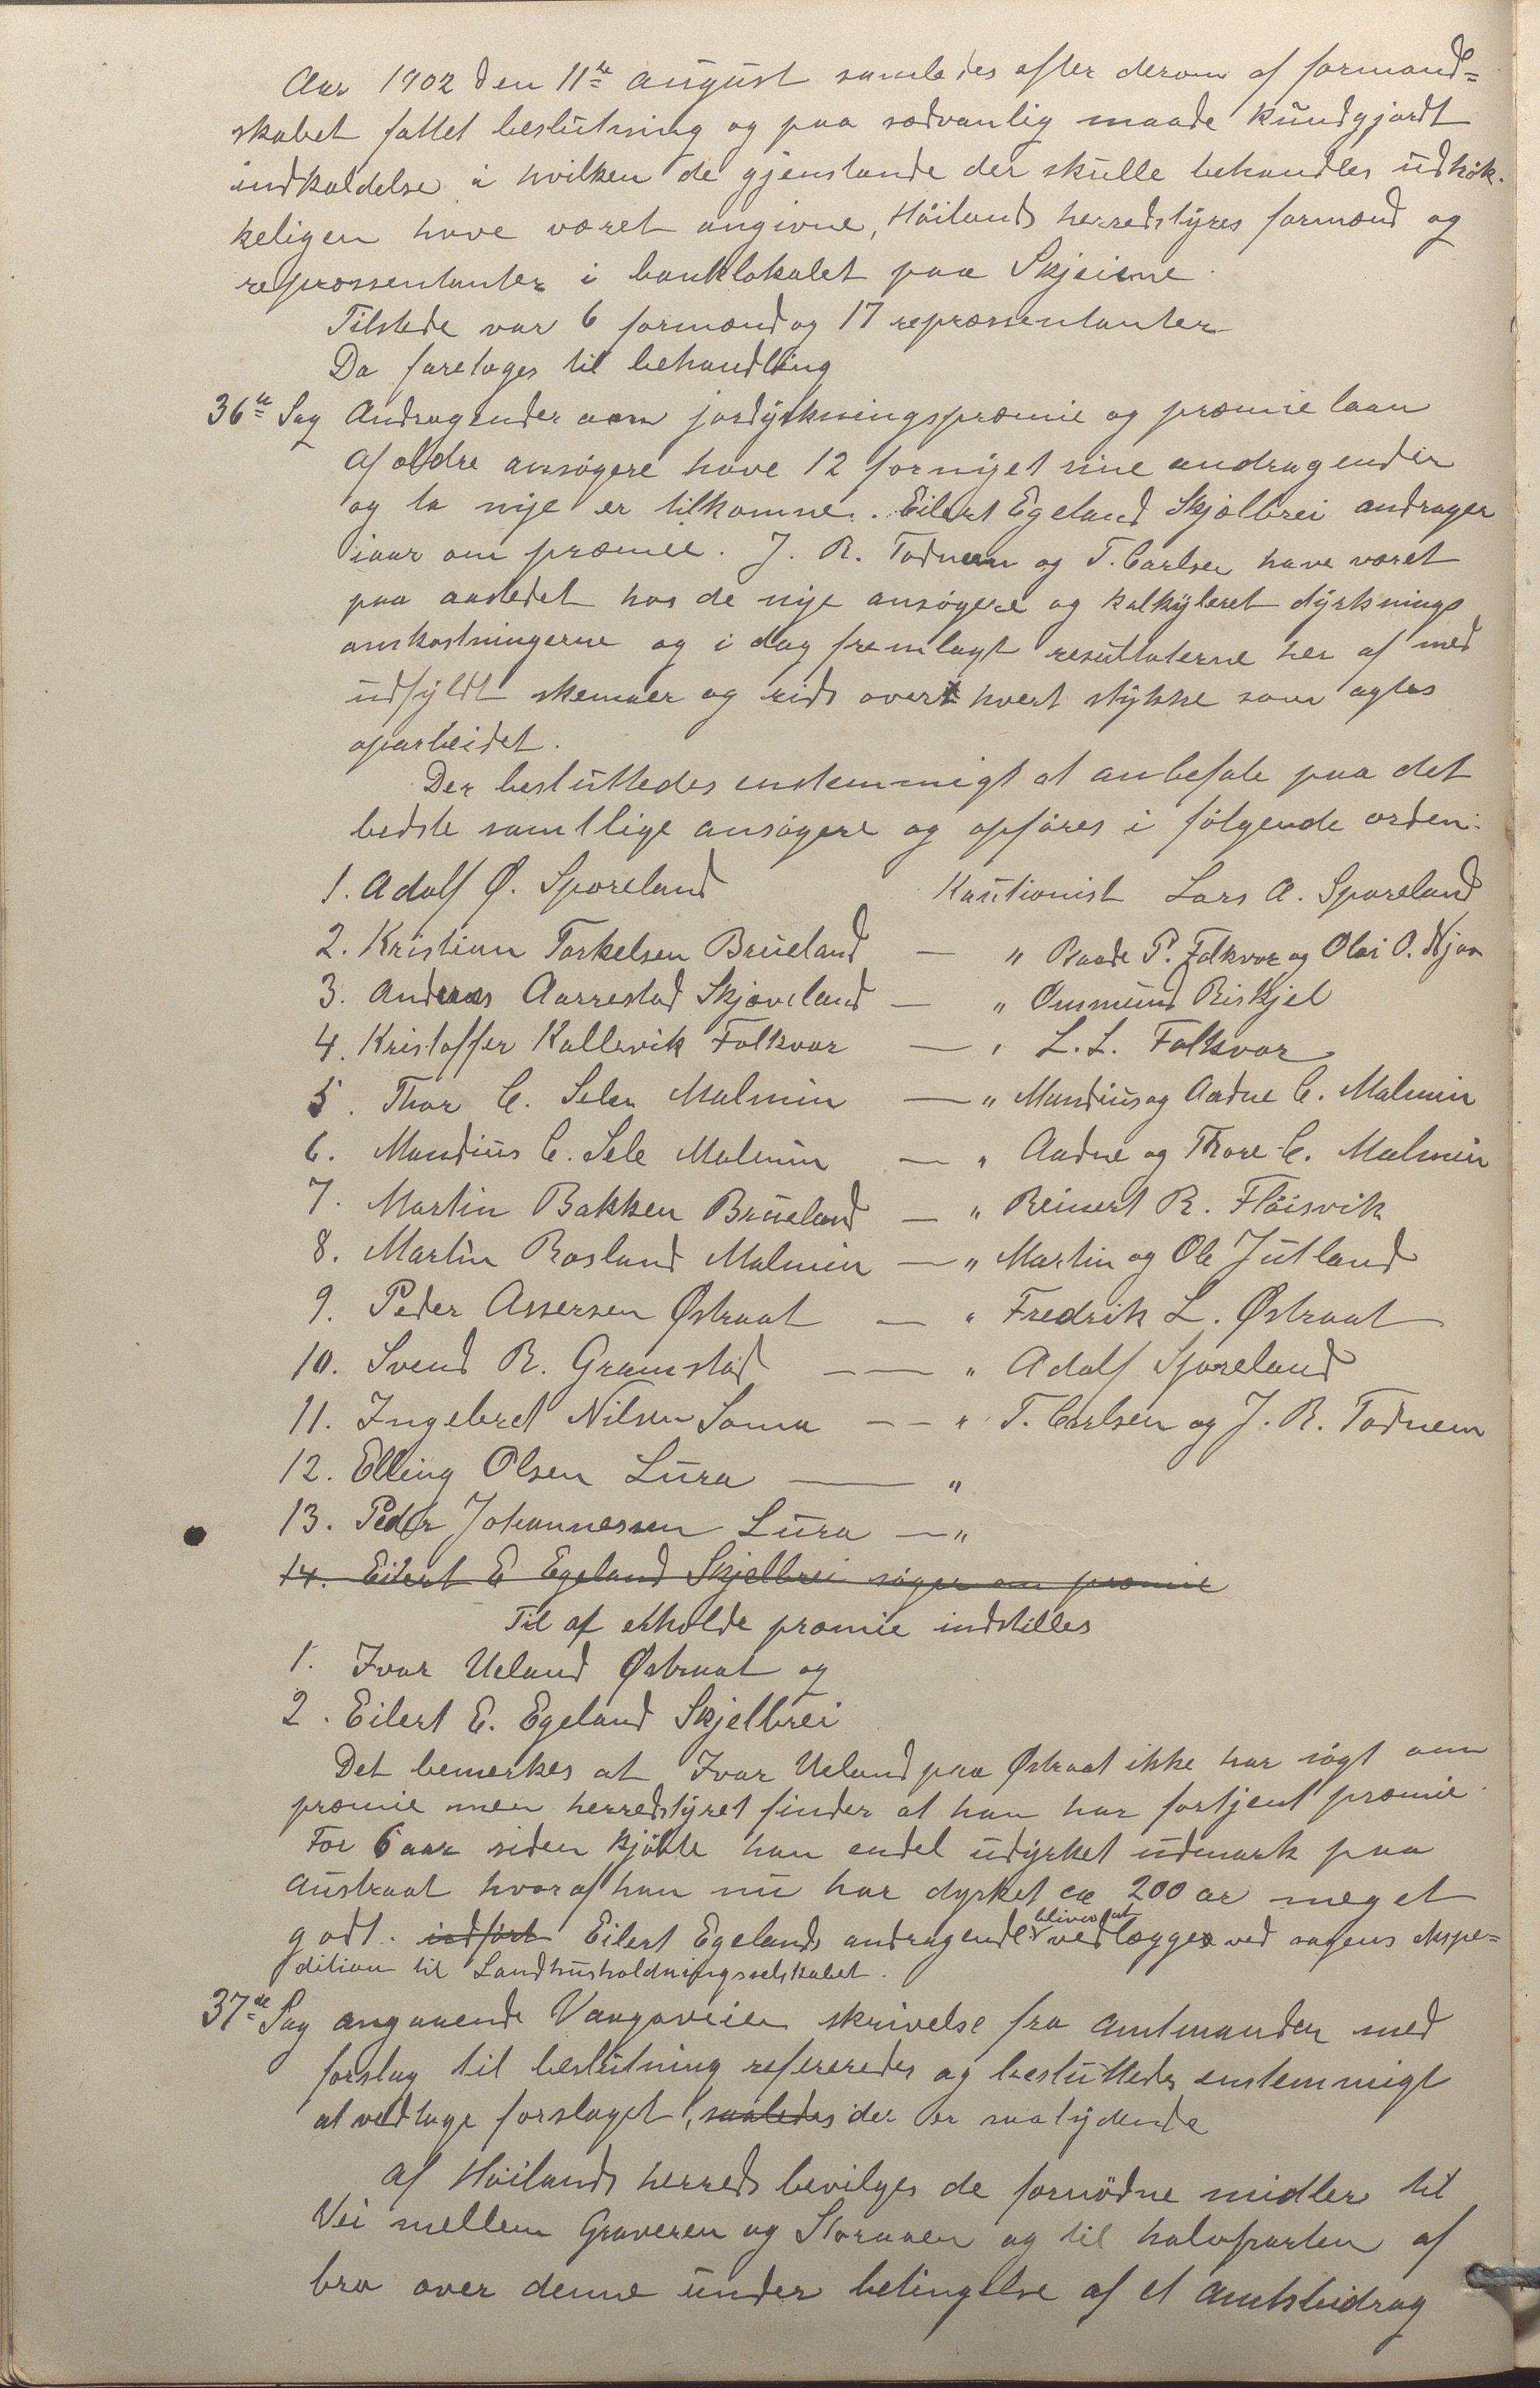 Aar 1902 den 11te august samledes efter derom af formand=
skabet fattet beslutning og paa sædvanlig maade kundgjordt
indkaldelse i hvilken de gjenstande der skulle behandles udtrök.
keligen have været angivne, Höilands herredstyres formænd og
repræssentanter i banklokalet paa Skjeiene
Tilstede var 6 formænd og 17 repræssentanter
Da foretoges til behandling
36te Sag Andragender om jordyrkningspræmie og præmielaan
Af ældre ansögere have 12 fornyet sine andragender
og to nye er tilkomne. Eilert Egeland Skjælbrei andrager
iaar om præmie. J. R. Todnem og T. Carlsen have været
paa aastedet hos de nye ansögere og kalkyleret dyrknings
omkostningerne og i dag fremlagt resultaterne her af med
udfyldt skemaer og rids over hvert stykke som agtes
oparbeidet.
Der besluttedes enstemmigt at anbefale paa det
bedste samtlige ansögere og opföres i fölgende orden:
1. Adolf Ø. Sporeland Kautionist Lars A. Sporeland
2. Kristian Torkelsen Brueland — " Baade P. Folkvor og Olai O. Njaa
3. Andreas Aarrestad Skjæveland — " Ommund Riskjel
4. Kristoffer Kallevik Folkvor — " L. L. Folkvor
5. Thor C. Sele Malmin — " Mandius og Aadne C. Malmin
6. Mandius C. Sele Malmin — " Aadne og Thore C. Malmin
7. Martin Bakken Brueland — " Reinert R. Flöisvik
8. Martin Rosland Malmin — " Martin og Ole Jutland
9. Peder Assersen Østraat — " Fredrik L. Østraat
10. Svend R. Gramstad — — " Adolf Sporeland
11. Ingebret Nilsen Soma — — " T. Carlsen og J. R. Todnem
12. Elling Olsen Lura — "
13. Peder Johannessen Lura — "
14. Eilert E Egeland Skjelbrei söger om præmie
Til at erholde præmie indstilles
1. Ivar Ueland Østraat og
2. Eilert E. Egeland Skjelbrei
Det bemerkes at Ivar Ueland paa Østraat ikke har sögt om
præmie men herredstyret finder at han har fortjent præmie
For 6 aar siden kjöbte han endel udyrket udmark paa
Austraat hvoraf han nu har dyrket ca 200 ar meget
godt. indfört Eilert Egelands andragende bliver at vedlægges ved sagens ekspe=
dition til Landhusholdningsselskabet.
37de Sag angaaende Vaagaveien skrivelse fra amtmanden med
forslag til beslutning refereredes og besluttedes enstemmigt
at vedtage forslaget, saaledes der er saalydende
Af Höilands herred bevilges de fornödne midler til
Vei mellem Graveren og Storaaen og til halvparten af
bro over denne under betingelse af et Amtsbidrag